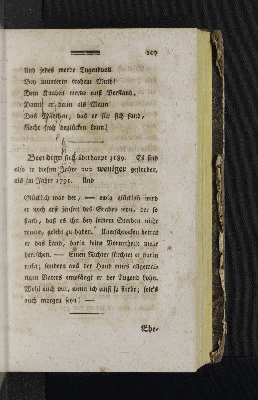 207
Und jedes werde Tugendvoll
Bey munterm frohem Muth!
Dem Knaben werde nutz Verstand,
Damit er dann als Mann
Das Mädchen, das er für sich fand,
Recht froh beglücken kann!
Beerdigt sich überhaupt 3189. Es sind
also in diesem Jahre 202 weniger gestorben,
als im Jahre 1791. Und
Glücklich war der, — ewig glücklich wird
er noch erst jenseit des Grabes seyn, der so
stark, daß es ihn bey seinem Sterben nicht
reuete, gelebt zu haben. Unerschrocken betrat
er das Land, darin keine Vorurtheile mehr
herrschen. — Einen Richter fürchtet er darin
nicht; sondern aus der Hand eines
Vaters empfängt er der Tugend Lohn.
Wohl auch mir, wenn ich einst so sterbe; sey's
auch morgen schon! —
Ehe-